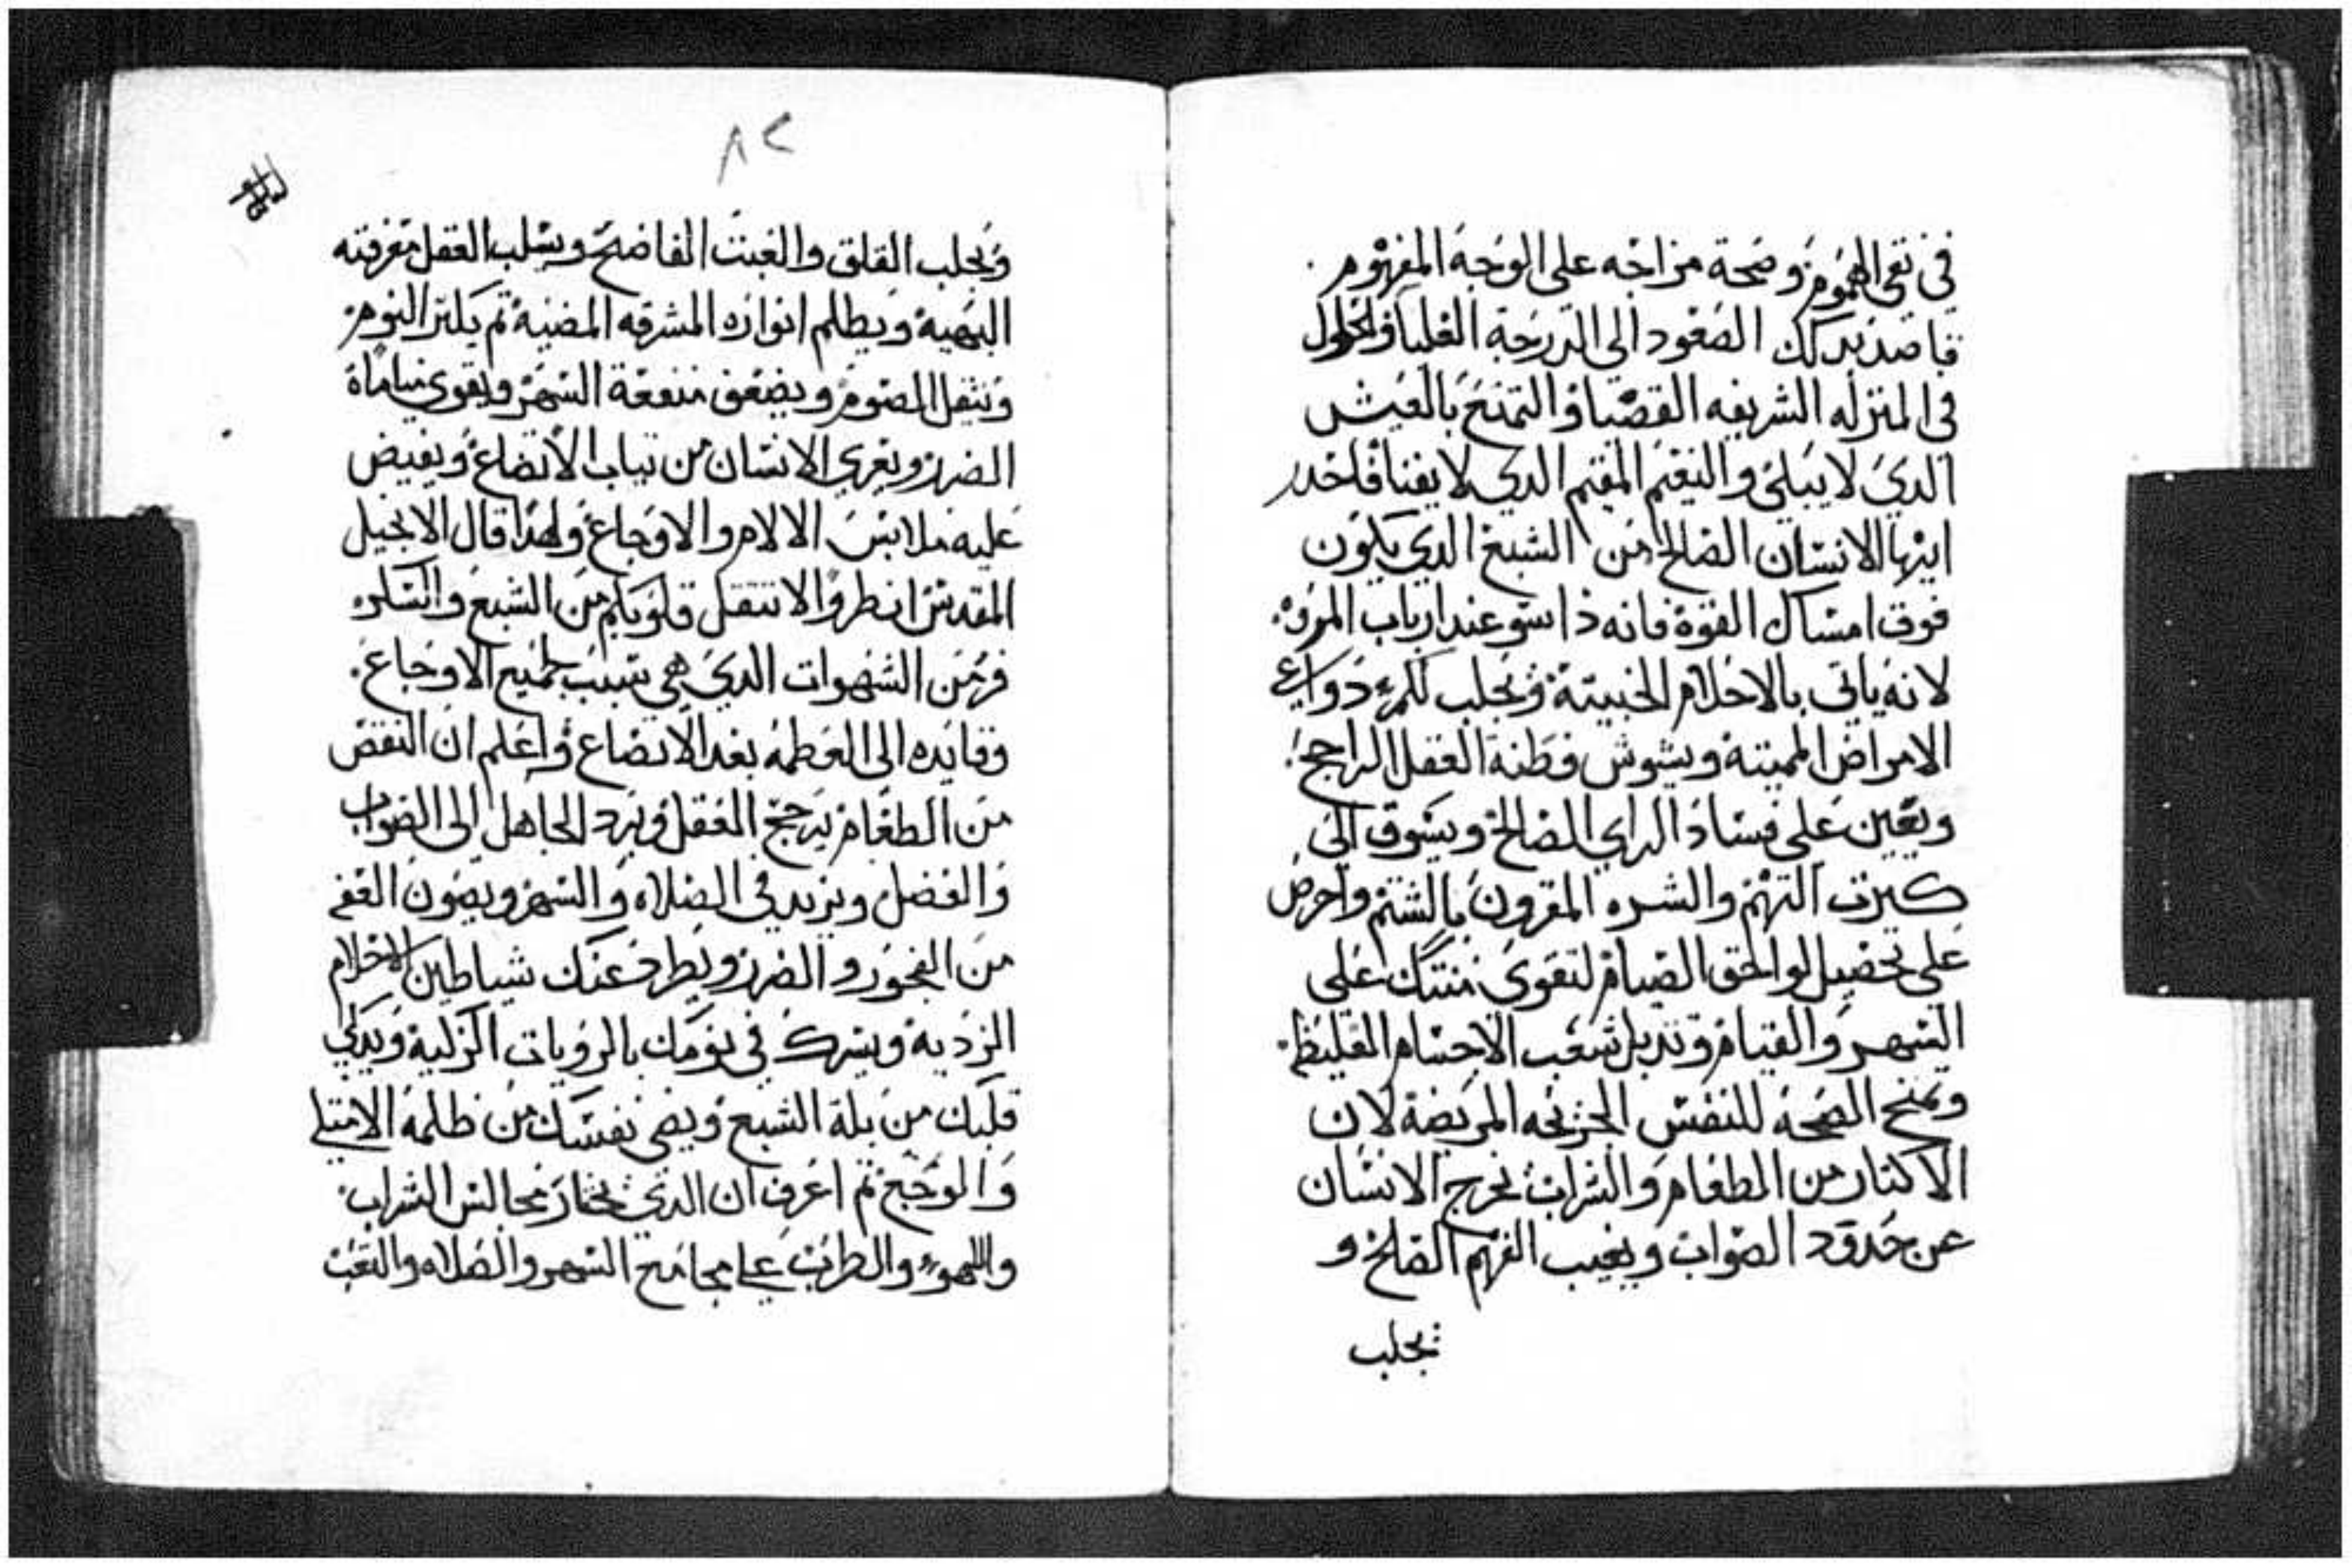 في نقي الهموم وصحة مزاجه على الوجه المفهوم
قاصد بدلك الصعود الى الدرجة العليا والحلول
في المنزله الشريفه القصيا والتمتع بالعيش
الدي لا يبلى والنعيم المقيم الدي لا يفنا فاحدر
ايها الانسان الصالح من الشبع الدي يكون
فوق امساك القوة فانه دا سو عند ارباب المروه
لانه ياتي بالاحلام الخبيتة ويجلب للمرء دواعي
الامراض المميتة ويشوش فطنة العقل الراجح
ويعين على فساد الراي الصالح ويسوق الى
كبرت النهم والشره المقرون بالشتم واحرص
على تحصيل لواحق الصيام لتقوى منتك على
السهر والقيام وتدبل شعب الاجسام الغليظ
وتمنح الصحة للنفس الجريحه المريضة لان
الاكتار من الطعام والشراب يخرج الانسان
عن حدود الصواب ويغيب الفهم الصلح و
يجلب
٨٢
ويجلب القلق والعبت الفاضح ويسلب العقل معرفته
البهية ويطلم انواره المشرقه المضية تم يكتر النوم
وتتقل الصوم ويضعف منفعة السهر ويقوي
الضرر ويعري الانسان من تياب الاتضاع ويفيض
عليه ملابس الالام والاوجاع ولهدا قال الانجيل
المقدس انطروا لا تتقل قلوبكم من الشبع والسكر
فرمن الشهوات الدي هي سبب جميع الاوجاع
وقايده الى العطمه بعد الاتضاع واعلم ان النقص
من الطعام يرجح العقل ويرد الجاهل الى الصواب
والفضل ويزيد في الصلاه والسهر ويصون العفه
من الفجور والضرر ويطرد عنك شياطين الاحلام
الرديه ويسرك في نومك بالرويات الزكية ويدكي
قلبك من بلة الشبع ويضي نفسك من ظلمة الامتلي
والوجع تم اعرف ان الدي يختار مجالس الشراب
واللهوء والطرب على مجامع السهر والصلاه والتعب